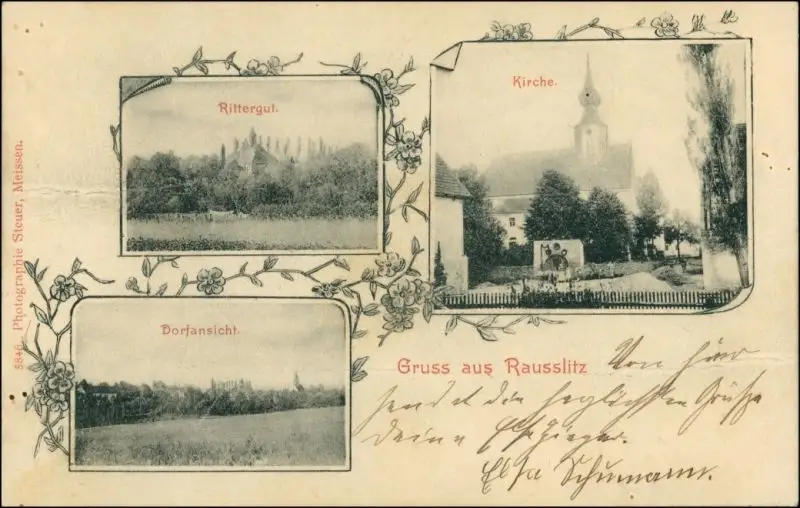 Rittergut.
Kirche.
5846. Photographie Steuer, Meissen.
Dorfansicht.
Gruss aus Rausslitz
Von hier
sendet die herzlichsten Grüße
Deine
Elsa Schumann.